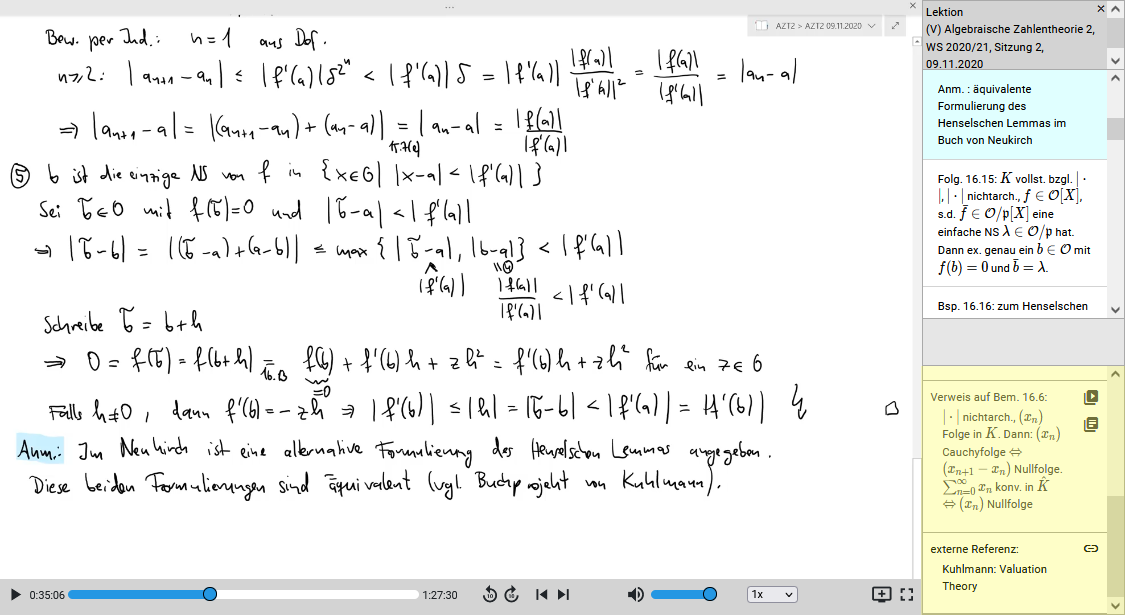 ...
AZT2 > AZT2 09.11.2020
Bew. per Ind.: n=1 aus Def.
n≥2: |a_{n+1} - a_n| ≤ |f'(a)| δ^{2^n} < |f'(a)| δ = |f'(a)| |f(a)|/|f'(a)|² = |f(a)|/|f'(a)| = |a_n - a|
⇒ |a_{n+1} - a| = |(a_{n+1} - a_n) + (a_n - a)| = |a_n - a| = |f(a)|/|f'(a)|
⑤ b ist die einzige NS von f in {x∈O | |x-a| < |f'(a)|}
Sei b̃∈O mit f(b̃)=0 und |b̃-a| < |f'(a)|
⇒ |b̃-b| = |(b̃-a)+(a-b)| ≤ max{|b̃-a|, |b-a|} < |f'(a)|
∧ |f'(a)| " ④ |f(a)|/|f'(a)| < |f'(a)|
Schreibe b̃ = b+h
⇒ 0 = f(b̃) = f(b+h) = f(b) + f'(b)h + zh² = f'(b)h + zh² für ein z∈O
16.13 =0
Falls h≠0, dann f'(b) = -zh ⇒ |f'(b)| ≤ |h| = |b̃-b| < |f'(a)| = |f'(b)| ↯ □
Anm.: Im Neukirch ist eine alternative Formulierung des Henselschen Lemmas angegeben.
Diese beiden Formulierungen sind äquivalent (vgl. Buchprojekt von Kuhlmann).
0:35:06
1:27:30
10
10
1x
Lektion
(V) Algebraische Zahlentheorie 2,
WS 2020/21, Sitzung 2,
09.11.2020
Anm. : äquivalente
Formulierung des
Henselschen Lemmas im
Buch von Neukirch
Folg. 16.15: K vollst. bzgl. | ·
|, | · | nichtarch., f ∈ O[X],
s.d. f̄ ∈ O/p[X] eine
einfache NS λ ∈ O/p hat.
Dann ex. genau ein b ∈ O mit
f(b) = 0 und b̄ = λ.
Bsp. 16.16: zum Henselschen
Verweis auf Bem. 16.6:
| · | nichtarch., (x_n)
Folge in K. Dann: (x_n)
Cauchyfolge ⇔
(x_{n+1} − x_n) Nullfolge.
∑_{n=0}^∞ x_n konv. in K̂
⇔ (x_n) Nullfolge
externe Referenz:
Kuhlmann: Valuation
Theory